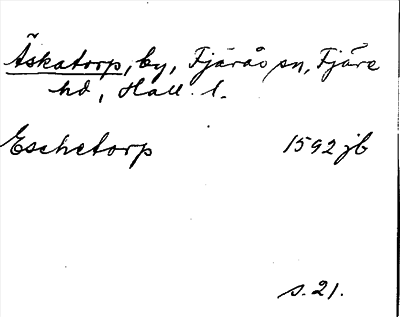 Äskatorp, by, Fjärås sn, Fjäre
hd, Hall. l.
Eschetorp 1592 jb
s. 21.